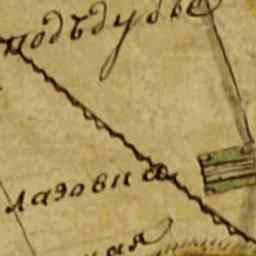 подъдубье
лазовна
ная